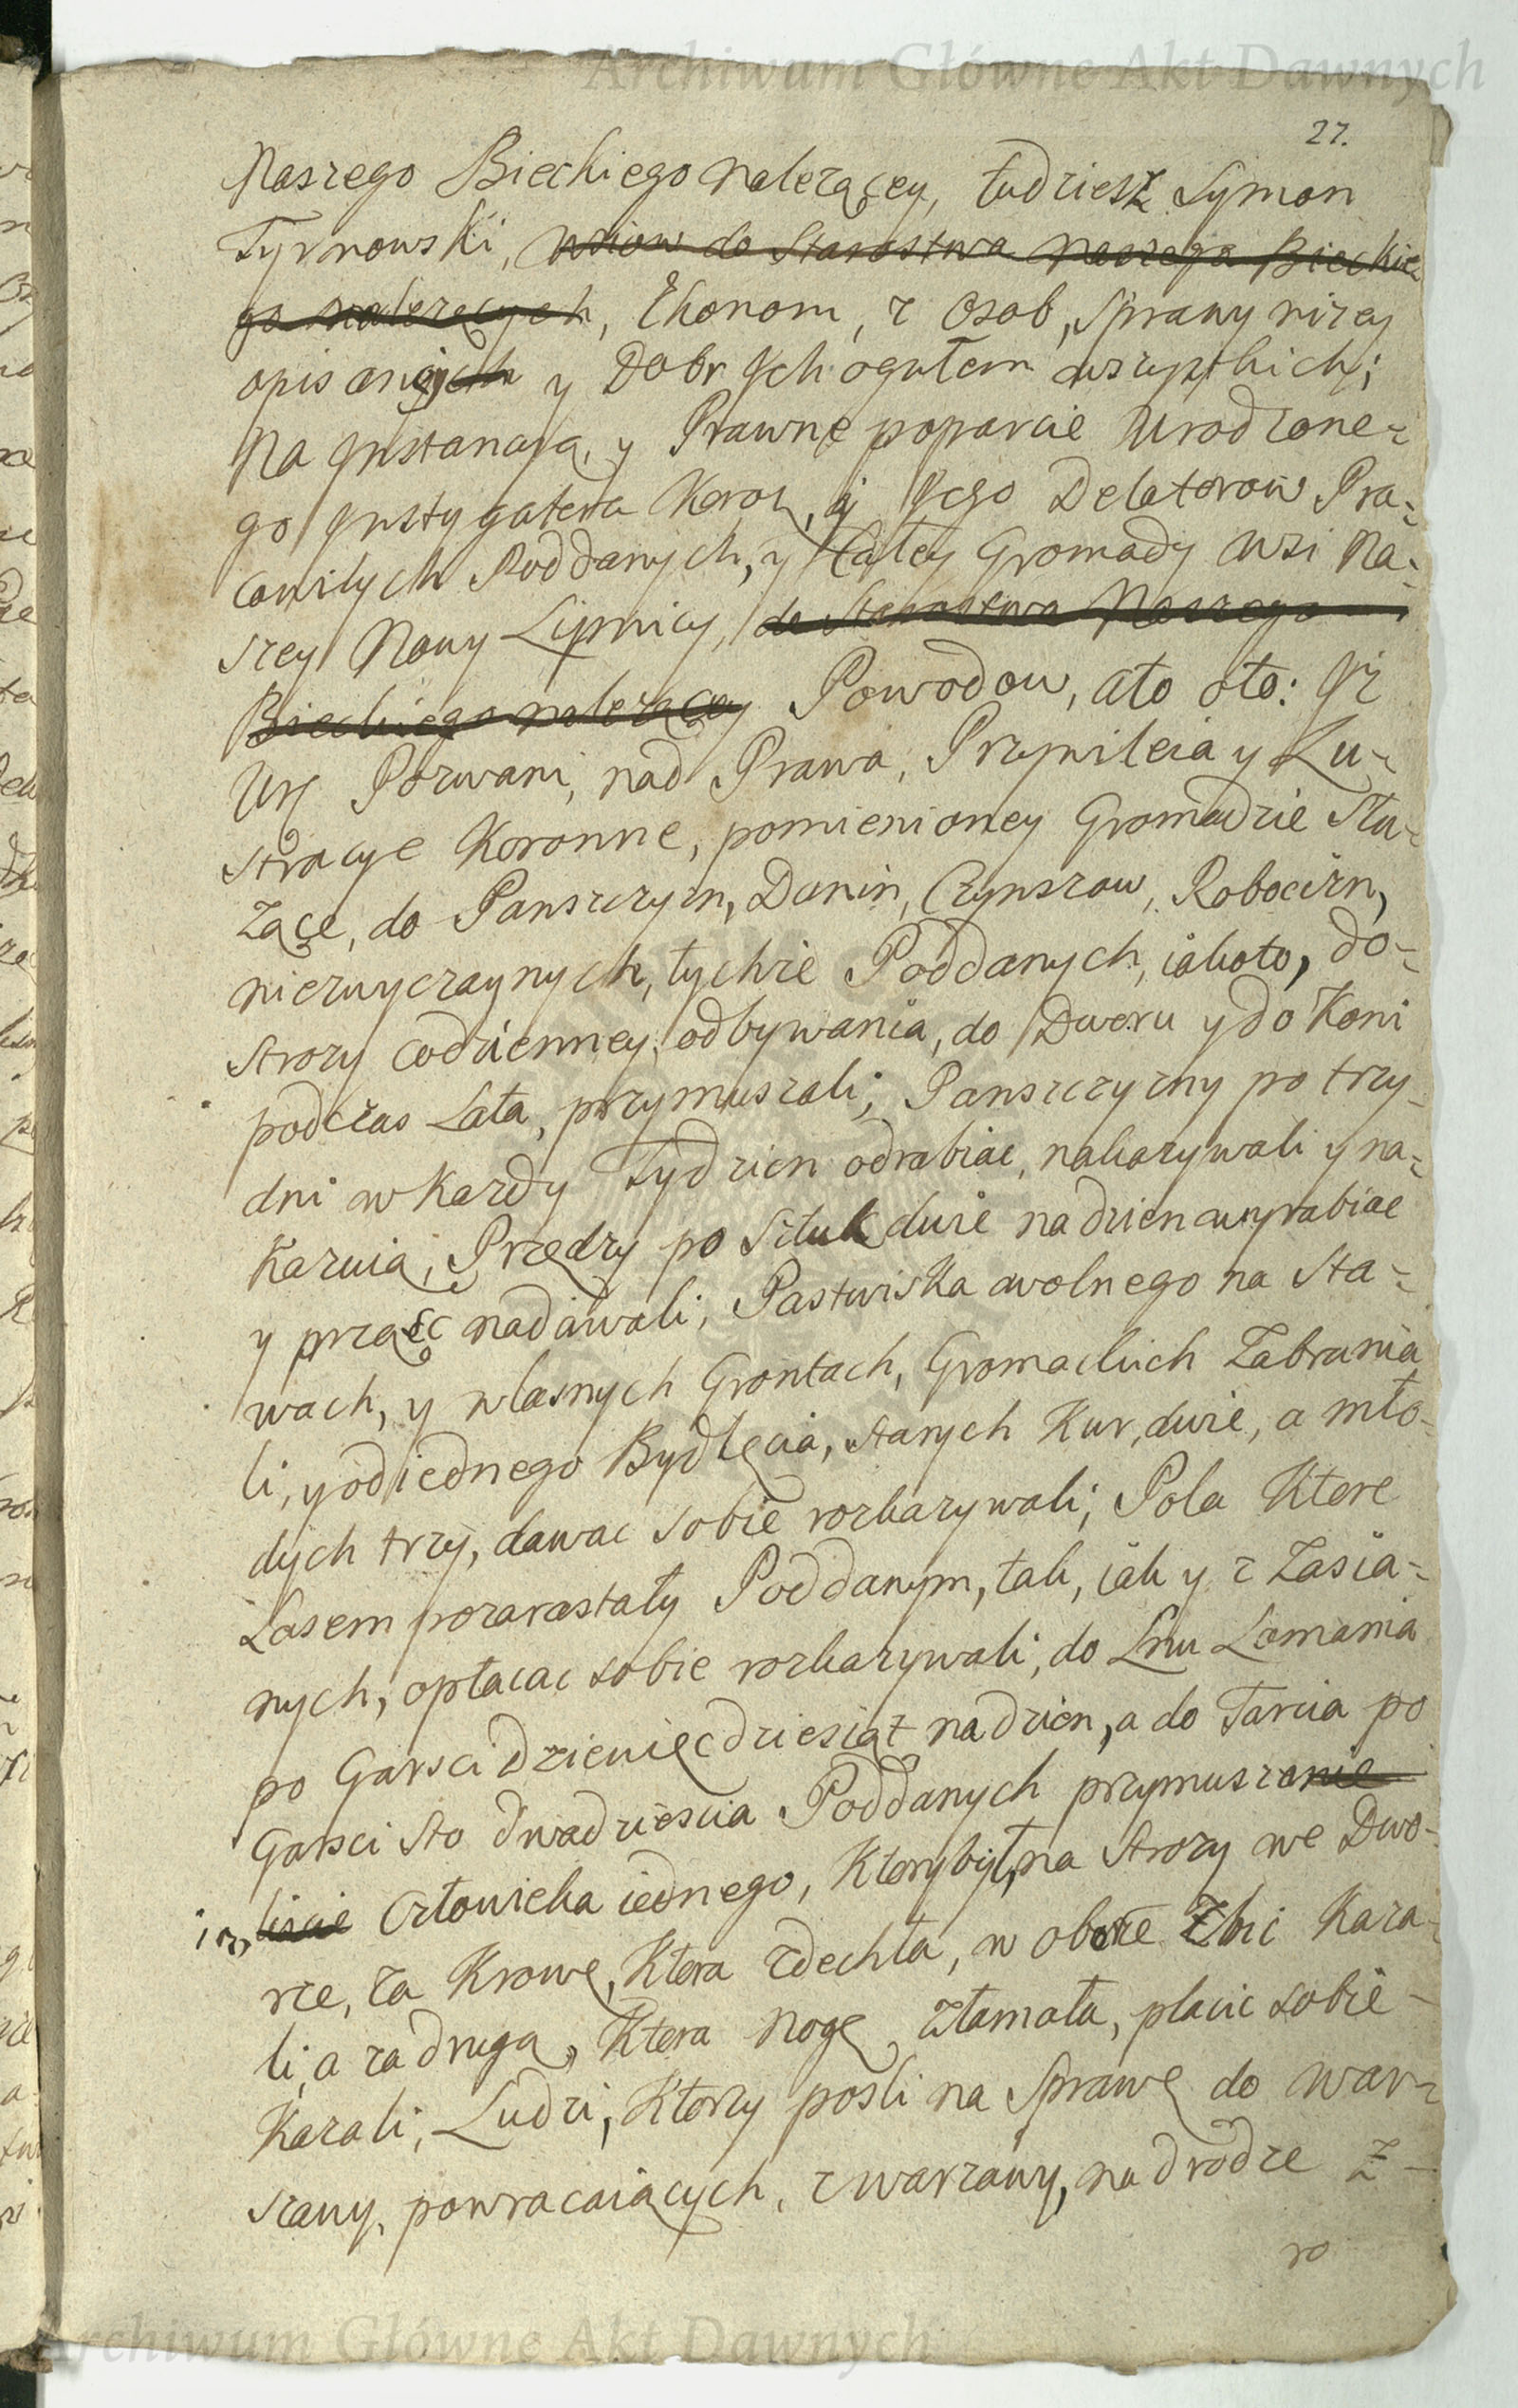 Archiwum Główne Akt Dawnych
27.
Naszego Bieckiego należącey, tudziesz Symon
Tyrnowski, wsiow do Starostwa Naszego Bieckie
go należących, Ekonom, z Osob, Sprawy niżey
opisaney y Dobr Jch ogułem wszystkich;
Na Jnstancyą, y Prawne poparcie Urodzone-
go Jnstygatora Koron, y Jego Delatorow Pra-
cowitych Poddanych, y Całey Gromady Wsi Na-
szey Nowy Lipnicy, do Starostwa Naszego
Bieckiego należącey Powodow, ato oto: Jż
Urę Pozwani, nad Prawa, Przywileia y Lu-
stracye Koronne, pomienioney Gromadzie Słu-
żące, do Panszczyzn, Danin, Czynszow, Robocizn,
niezwyczaynych, tychże Poddanych, iakoto, do-
Strozy codzienney odbywania, do Dworu y do Koni
podczas Lata, przymuszali; Panszczyzny po trzy
dni w Kazdy Tydzien odrabiac, nakazywali y na-
Kazuią, Przędzy po Sztuk dwie na dzien wyrabiac
y prząść nadawali, Pastwiska wolnego na Sta-
wach, y własnych Grontach, Gromadzkich Zabrania
li, y od iednego Bydlęcia, starych Kur, dwie, a mło-
dych trzy, dawac sobie rozkazywali; Pola Ktore
Lasem pozarastały Poddanym, tak, iak y z Zasia-
nych, opłacac sobie rozkazywali, do Lnu Łomania
po Garsci dziewięcdziesiąt na dzien, a do Tarcia po
Garsci sto dwadziescia Poddanych przymuszanie
liscie Człowieka iednego, Ktory był, na Strozy we Dwo-
rze, za Krowę, Ktora zdechła, w oborze Zbić Kaza-
li, a za drugą, Ktora nogę złamała, płacic sobie
Kazali; Ludzi, Ktorzy posli na Sprawę do War-
szawy, powracaiących, z Warszawy, na drodze Z-
ro
Archiwum Główne Akt Dawnych